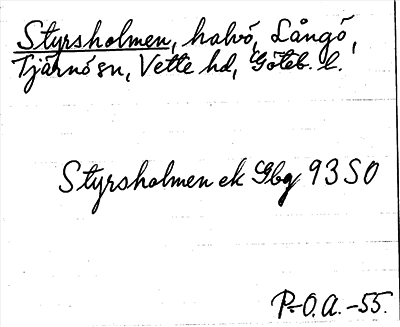 Styrsholmen, halvö, Långö,
Tjärnö sn, Vette hd, Göteb. l.
Styrsholmen ek Gbg 93 SO
P-O.A. -55.